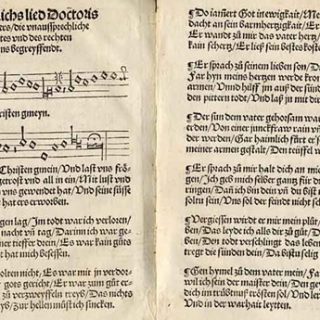 lichs lied Doctoris
die vnaussprechliche
vnd des rechten
begreyffendt.
isten gmeyn.
Christen gmein/ Vnd last vns frö-
getrost vnd all in ein/ Mit lust
vns gewendet hat/ Vnd seine süsse
hat ers erworben.
gen lag/ Im todt war ich verloren/
nacht vnd tag/ Darinn ich war ge-
mer tieffer drein/ Es war kain güts
hat mich besessen.
golten nicht/ Es war mit jn verdor-
gots gericht/ Er war zum güt er-
zů verzweyffeln treyb/ Das nichts
Zur hellen můst ich sincken.
¶Do jamert Got in ewigkait/
dacht an sein barmhertzigkait/ Er
Er wandt zů mir das vater hertz/
kain schertz/ Er ließ sein bestes koste
¶Er sprach zů seinem lieben son/ Di
Far hyn meins hertzen werde kron
armen/ Vnnd hilff jm auß der sünd
den pittern todt/ Vnd laß jn mit dir
¶Der sun dem vater gehorsam war
erden/ Von einer junckfraw rain vn
werden/ Gar haimlich fürt er sein
meiner armen gestalt/ Den teüffel
¶Er sprach zů mir halt dich an mich
gen/ Ich geb mich selber gantz für
ringen/ Dañ ich bin dein vñ du bist
soltu sein/ Vns sol der feindt nicht
¶Vergiessen wirdt er mir mein plůt
ben/ Das leyd ich alls dir zů gůt/
ben/ Den todt verschlingt das leben
die vnschuldt mein/ Da bistu selig
¶Gen hymel zů dem vater mein/
wil ich sein der maister dein/ Den gey
dich in trübtnuß trösten sol/ Vnd
Vnd in der warhait leyten.